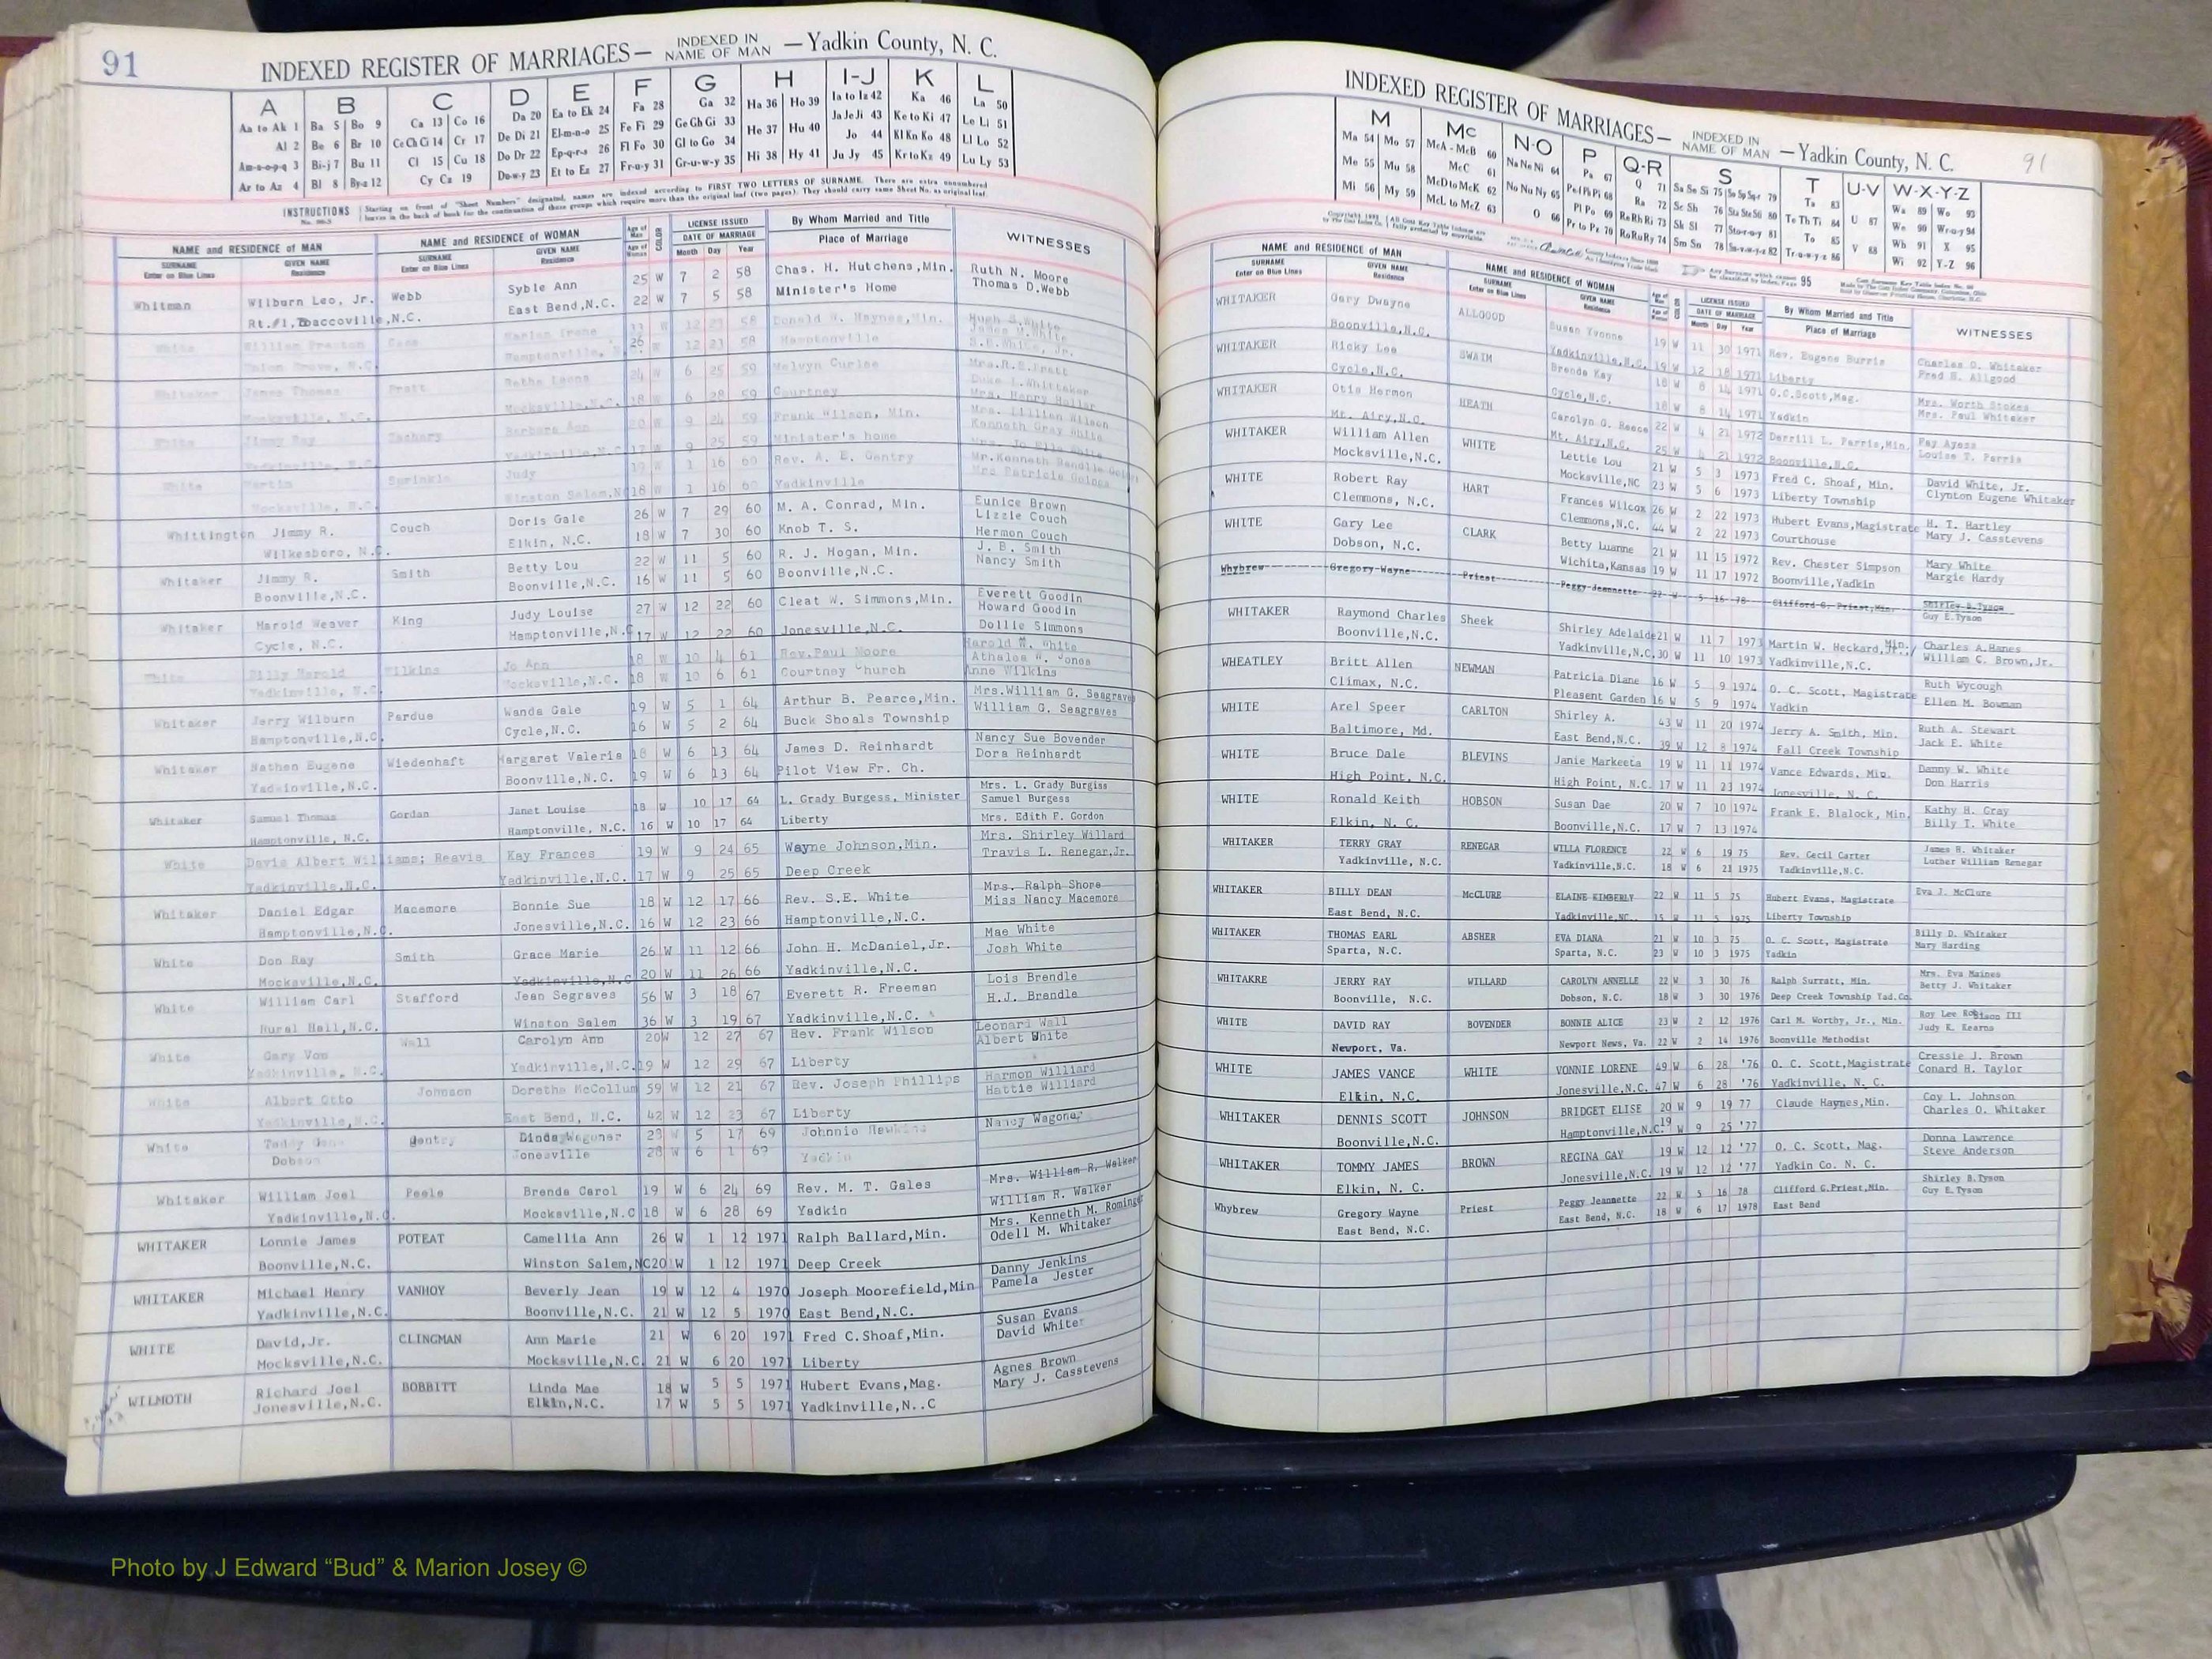 91
INDEXED REGISTER OF MARRIAGES— INDEXED IN NAME OF MAN —Yadkin County, N. C.
A B C D E F G H I-J K L
Aa to Ak 1 Ba 5 Bo 9 Ca 13 Co 16 Da 20 Ea to Ek 24 Fa 28 Ga 32 Ha 36 Ho 39 Ia to Iz 42 Ka 46 La 50
Al 2 Be 6 Br 10 Ce Ch Ci 14 Cr 17 De Di 21 El-m-n-o 25 Fe Fi 29 Ge Gh Gi 33 He 37 Hu 40 Ja Je Ji 43 Ke to Ki 47 Le Li 51
Am-s-o-p-q 3 Bi-j 7 Bu 11 Cl 15 Cu 18 Do Dr 22 Ep-q-r-s 26 Fl Fo 30 Gl to Go 34 Hi 38 Hy 41 Jo 44 Kl Kn Ko 48 Ll Lo 52
Ar to Az 4 Bl 8 By-z 12 Cy Cz 19 Du-w-y 23 Et to Ez 27 Fr-u-y 31 Gr-u-w-y 35 Ju Jy 45 Kr to Kz 49 Lu Ly 53
INSTRUCTIONS Starting on front of "Sheet Numbers" designated, names are indexed according to FIRST TWO LETTERS OF SURNAME. There are extra unnumbered
leaves in the back of book for the continuation of these groups which require more than the original leaf (two pages). They should carry same Sheet No. as original leaf.
NAME and RESIDENCE OF MAN NAME and RESIDENCE OF WOMAN Age of Man COLOR LICENSE ISSUED By Whom Married and Title WITNESSES
SURNAME GIVEN NAME SURNAME GIVEN NAME Age of Woman DATE OF MARRIAGE Place of Marriage
Enter on Blue Lines Residence Enter on Blue Lines Residence Month Day Year
Whitman Wilburn Leo, Jr. Webb Syble Ann 25 W 7 2 58 Chas. H. Hutchens,Min. Ruth N. Moore
Rt.#1,Tobaccoville,N.C. East Bend,N.C. 22 W 7 5 58 Minister's Home Thomas D.Webb
White William Preston 12 23 58 Donald W. Haynes,Min. Hugh S.White
Union Grove, N.C. Hamptonville, N. 26 W 12 23 58 Hamptonville James M.White
S.E.White, Jr.
Whitaker James Thomas Pratt Retha Leona 24 W 6 25 59 Melvyn Curlee Mrs.R.S.Pratt
Mocksville, N.C. Mocksville,N.C. 18 W 6 28 59 Courtney Duke L.Whittaker
White Jimmy Ray Zachary Barbara Ann 20 W 9 24 59 Frank Wilson, Min. Mrs. Lillian Wilson
Yadkinville,N.C. Yadkinville,N.C 17 W 9 25 59 Minister's home Kenneth Gray White
White Martin Sprinkle Judy 19 W 1 16 60 Rev. A. E. Gentry
Mocksville, N.C. Winston Salem,N 18 W 1 16 60 Yadkinville
Whittington Jimmy R. Couch Doris Gale 26 W 7 29 60 M. A. Conrad, Min. Eunice Brown
Wilkesboro, N.C. Elkin, N.C. 18 W 7 30 60 Knob T. S. Lizzie Couch
Hermon Couch
Whitaker Jimmy R. Smith Betty Lou 22 W 11 5 60 R. J. Hogan, Min. J. B. Smith
Boonville,N.C. Boonville,N.C. 16 W 11 5 60 Boonville,N.C. Nancy Smith
Whitaker Harold Weaver King Judy Louise 27 W 12 22 60 Cleat W. Simmons,Min. Everett Goodin
Cycle, N.C. Hamptonville,N.C 17 W 12 22 60 Jonesville,N.C. Howard Goodin
Dollie Simmons
White Billy Harold Wilkins Jo Ann 18 W 10 4 61 Rev.Paul Moore Harold W. White
Yadkinville, N.C Mocksville,N.C. 18 W 10 6 61 Courtney Church Athalea W. Jones
Anne Wilkins
Whitaker Jerry Wilburn Pardue Wanda Gale 19 W 5 1 64 Arthur B. Pearce,Min. Mrs.William G. Seagraves
Hamptonville,N.C. Cycle,N.C. 16 W 5 2 64 Buck Shoals Township William G. Seagraves
Whitaker Nathen Eugene Wiedenhaft Margaret Valeria 18 W 6 13 64 James D. Reinhardt Nancy Sue Bovender
Yadkinville,N.C. Boonville,N.C. 19 W 6 13 64 Pilot View Fr. Ch. Dora Reinhardt
Whitaker Samuel Thomas Gordan Janet Louise 18 W 10 17 64 L. Grady Burgess, Minister Mrs. L. Grady Burgiss
Hamptonville, N.C. Hamptonville, N.C. 16 W 10 17 64 Liberty Samuel Burgess
Mrs. Edith F. Gordon
White Davis Albert Williams; Reavis Kay Frances 19 W 9 24 65 Wayne Johnson,Min. Mrs. Shirley Willard
Yadkinville,N.C. Yadkinville,N.C. 17 W 9 25 65 Deep Creek Travis L. Renegar,Jr.
Whitaker Daniel Edgar Macemore Bonnie Sue 18 W 12 17 66 Rev. S.E. White Mrs. Ralph Shore
Hamptonville,N.C. Jonesville,N.C. 16 W 12 23 66 Hamptonville,N.C. Miss Nancy Macemore
White Don Ray Smith Grace Marie 26 W 11 12 66 John H. McDaniel,Jr. Mae White
Mocksville,N.C. Yadkinville,N.C 20 W 11 26 66 Yadkinville,N.C. Josh White
White William Carl Stafford Jean Segraves 56 W 3 18 67 Everett R. Freeman Lois Brendle
Rural Hall,N.C. Winston Salem 36 W 3 19 67 Yadkinville,N.C. H.J. Brendle
White Gary Von Wall Carolyn Ann 20W 12 27 67 Rev. Frank Wilson Leonard Wall
Yadkinville, N.C. Yadkinville,N.C. 19 W 12 29 67 Liberty Albert White
White Albert Otto Johnson Doretha McCollum 59 W 12 21 67 Rev. Joseph Phillips Harmon Williard
Yadkinville,N.C. East Bend, N.C. 42 W 12 23 67 Liberty Hattie Williard
White Teddy Gene Gentry Linda Wagoner 23 W 5 17 69 Johnnie Hawkins Nancy Wagoner
Dobson Jonesville 28 W 6 1 69 Yadkin
Whitaker William Joel Peele Brenda Carol 19 W 6 24 69 Rev. M. T. Gales Mrs. William R. Walker
Yadkinville,N.C. Mocksville,N.C 18 W 6 28 69 Yadkin William R. Walker
WHITAKER Lonnie James POTEAT Camellia Ann 26 W 1 12 1971 Ralph Ballard,Min. Mrs. Kenneth M. Rominger
Boonville,N.C. Winston Salem,NC 20 W 1 12 1971 Deep Creek Odell M. Whitaker
WHITAKER Michael Henry VANHOY Beverly Jean 19 W 12 4 1970 Joseph Moorefield,Min Danny Jenkins
Yadkinville,N.C. Boonville,N.C. 21 W 12 5 1970 East Bend,N.C. Pamela Jester
WHITE David,Jr. CLINGMAN Ann Marie 21 W 6 20 1971 Fred C.Shoaf,Min. Susan Evans
Mocksville,N.C. Mocksville,N.C. 21 W 6 20 1971 Liberty David White
WILMOTH Richard Joel BOBBITT Linda Mae 18 W 5 5 1971 Hubert Evans,Mag. Agnes Brown
Jonesville,N.C. Elkin,N.C. 17 W 5 5 1971 Yadkinville,N..C Mary J. Casstevens
INDEXED REGISTER OF MARRIAGES— INDEXED IN NAME OF MAN —Yadkin County, N. C. 91
M Mc N-O P Q-R S T U-V W-X-Y-Z
Ma 54 Mo 57 McA - McB 60 Na Ne Ni 64 Pa 67 Q 71 Sa Se Si 75 So Sp Sq-r 79 Ta 83 Wa 89 Wo 93
Me 55 Mu 58 McC 61 No Nu Ny 65 Pe Pf Ph Pi 68 Ra 72 Sc Sh 76 Sta Ste Sti 80 Te Th Ti 84 U 87 We 90 Wr-u-y 94
Mi 56 My 59 McD to McK 62 O 66 Pl Po 69 Re Rh Ri 73 Sk Sl 77 Sto-r-u-y 81 To 85 V 88 Wh 91 X 95
McL to McZ 63 Pr to Pz 70 Ro Ru Ry 74 Sm Sn 78 Su-v-w-y-z 82 Tr-u-w-y-z 86 Wi 92 Y-Z 96
NAME and RESIDENCE OF MAN NAME and RESIDENCE OF WOMAN LICENSE ISSUED By Whom Married and Title WITNESSES
SURNAME GIVEN NAME SURNAME GIVEN NAME DATE OF MARRIAGE Place of Marriage
Enter on Blue Lines Residence Enter on Blue Lines Residence Month Day Year
WHITAKER Gary Dwayne ALLGOOD Susan Yvonne 19 W 11 30 1971 Rev. Eugene Burris Charles O. Whitaker
Boonville,N.C. Yadkinville,N.C. 19 W 12 18 1971 Liberty Fred H. Allgood
WHITAKER Ricky Lee SWAIM Brenda Kay 18 W 8 14 1971 O.C.Scott,Mag. Mrs. Worth Stokes
Cycle,N.C. Cycle,N.C. 18 W 8 14 1971 Yadkin Mrs. Paul Whitaker
WHITAKER Otis Hermon HEATH Carolyn G. Reece 22 W 4 21 1972 Derrill L. Parris,Min. Fay Ayers
Mt. Airy,N.C. Mt. Airy,N.C. 25 W 4 21 1972 Boonville,N.C. Louise T. Parris
WHITAKER William Allen WHITE Lettie Lou 21 W 5 3 1973 Fred C. Shoaf, Min. David White, Jr.
Mocksville,N.C. Mocksville,NC 23 W 5 6 1973 Liberty Township Clynton Eugene Whitaker
WHITE Robert Ray HART Frances Wilcox 26 W 2 22 1973 Hubert Evans,Magistrate H. T. Hartley
Clemmons, N.C. Clemmons,N.C. 44 W 2 22 1973 Courthouse Mary J. Casstevens
WHITE Gary Lee CLARK Betty Luanne 21 W 11 15 1972 Rev. Chester Simpson Mary White
Dobson, N.C. Wichita,Kansas 19 W 11 17 1972 Boonville,Yadkin Margie Hardy
Whybrew Gregory Wayne Priest Peggy Jeannette 22 W 5 16 78 Clifford G. Priest,Min, Shirley B.Tyson
Guy E.Tyson
WHITAKER Raymond Charles Sheek Shirley Adelaide 21 W 11 7 1973 Martin W. Heckard, Min. Charles A.Hanes
Boonville,N.C. Yadkinville,N.C, 30 W 11 10 1973 Yadkinville,N.C. William C. Brown,Jr.
WHEATLEY Britt Allen NEWMAN Patricia Diane 16 W 5 9 1974 O. C. Scott, Magistrate Ruth Wycough
Climax, N.C. Pleasent Garden 16 W 5 9 1974 Yadkin Ellen M. Bowman
WHITE Arel Speer CARLTON Shirley A. 43 W 11 20 1974 Jerry A. Smith, Min. Ruth A. Stewart
Baltimore, Md. East Bend,N.C. 39 W 12 8 1974 Fall Creek Township Jack E. White
WHITE Bruce Dale BLEVINS Janie Markeeta 19 W 11 11 1974 Vance Edwards, Min. Danny W. White
High Point, N.C. High Point, N.C. 17 W 11 23 1974 Jonesville, N. C. Don Harris
WHITE Ronald Keith HOBSON Susan Dae 20 W 7 10 1974 Frank E. Blalock, Min. Kathy H. Gray
Elkin, N. C. Boonville,N.C. 17 W 7 13 1974 Billy T. White
WHITAKER TERRY GRAY RENEGAR WILLA FLORENCE 22 W 6 19 75 Rev. Cecil Carter James H. Whitaker
Yadkinville, N.C. Yadkinville,N.C. 18 W 6 21 1975 Yadkinville,N.C. Luther William Renegar
WHITAKER BILLY DEAN McCLURE ELAINE KIMBERLY 22 W 11 5 75 Hubert Evans, Magistrate Eva J. McClure
East Bend, N.C. Yadkinville,NC 15 W 11 5 1975 Liberty Township
WHITAKER THOMAS EARL ABSHER EVA DIANA 21 W 10 3 75 O. C. Scott, Magistrate Billy D. Whitaker
Sparta, N.C. Sparta, N.C. 23 W 10 3 1975 Yadkin Mary Harding
WHITAKRE JERRY RAY WILLARD CAROLYN ANNELLE 22 W 3 30 76 Ralph Surratt, Min. Mrs. Eva Haines
Boonville, N.C. Dobson, N.C. 18 W 3 30 1976 Deep Creek Township Yad.Co. Betty J. Whitaker
WHITE DAVID RAY BOVENDER BONNIE ALICE 23 W 2 12 1976 Carl M. Worthy, Jr., Min. Roy Lee Robison III
Newport, Va. Newport News, Va. 22 W 2 14 1976 Boonville Methodist Judy K. Kearns
WHITE JAMES VANCE WHITE VONNIE LORENE 49 W 6 28 '76 O. C. Scott,Magistrate Cressie J. Brown
Elkin, N.C. Jonesville,N.C. 47 W 6 28 '76 Yadkinville, N. C. Conard H. Taylor
WHITAKER DENNIS SCOTT JOHNSON BRIDGET ELISE 20 W 9 19 77 Claude Haynes,Min. Coy L. Johnson
Boonville,N.C. Hamptonville,N.C. 19 W 9 25 '77 Charles O. Whitaker
WHITAKER TOMMY JAMES BROWN REGINA GAY 19 W 12 12 '77 O. C. Scott, Mag. Donna Lawrence
Elkin, N. C. Jonesville,N.C. 19 W 12 12 '77 Yadkin Co. N. C. Steve Anderson
Whybrew Gregory Wayne Priest Peggy Jeannette 22 W 5 16 78 Clifford G.Priest,Min. Shirley B.Tyson
East Bend, N.C. East Bend, N.C. 18 W 6 17 1978 East Bend Guy E.Tyson
Photo by J Edward “Bud” & Marion Josey ©